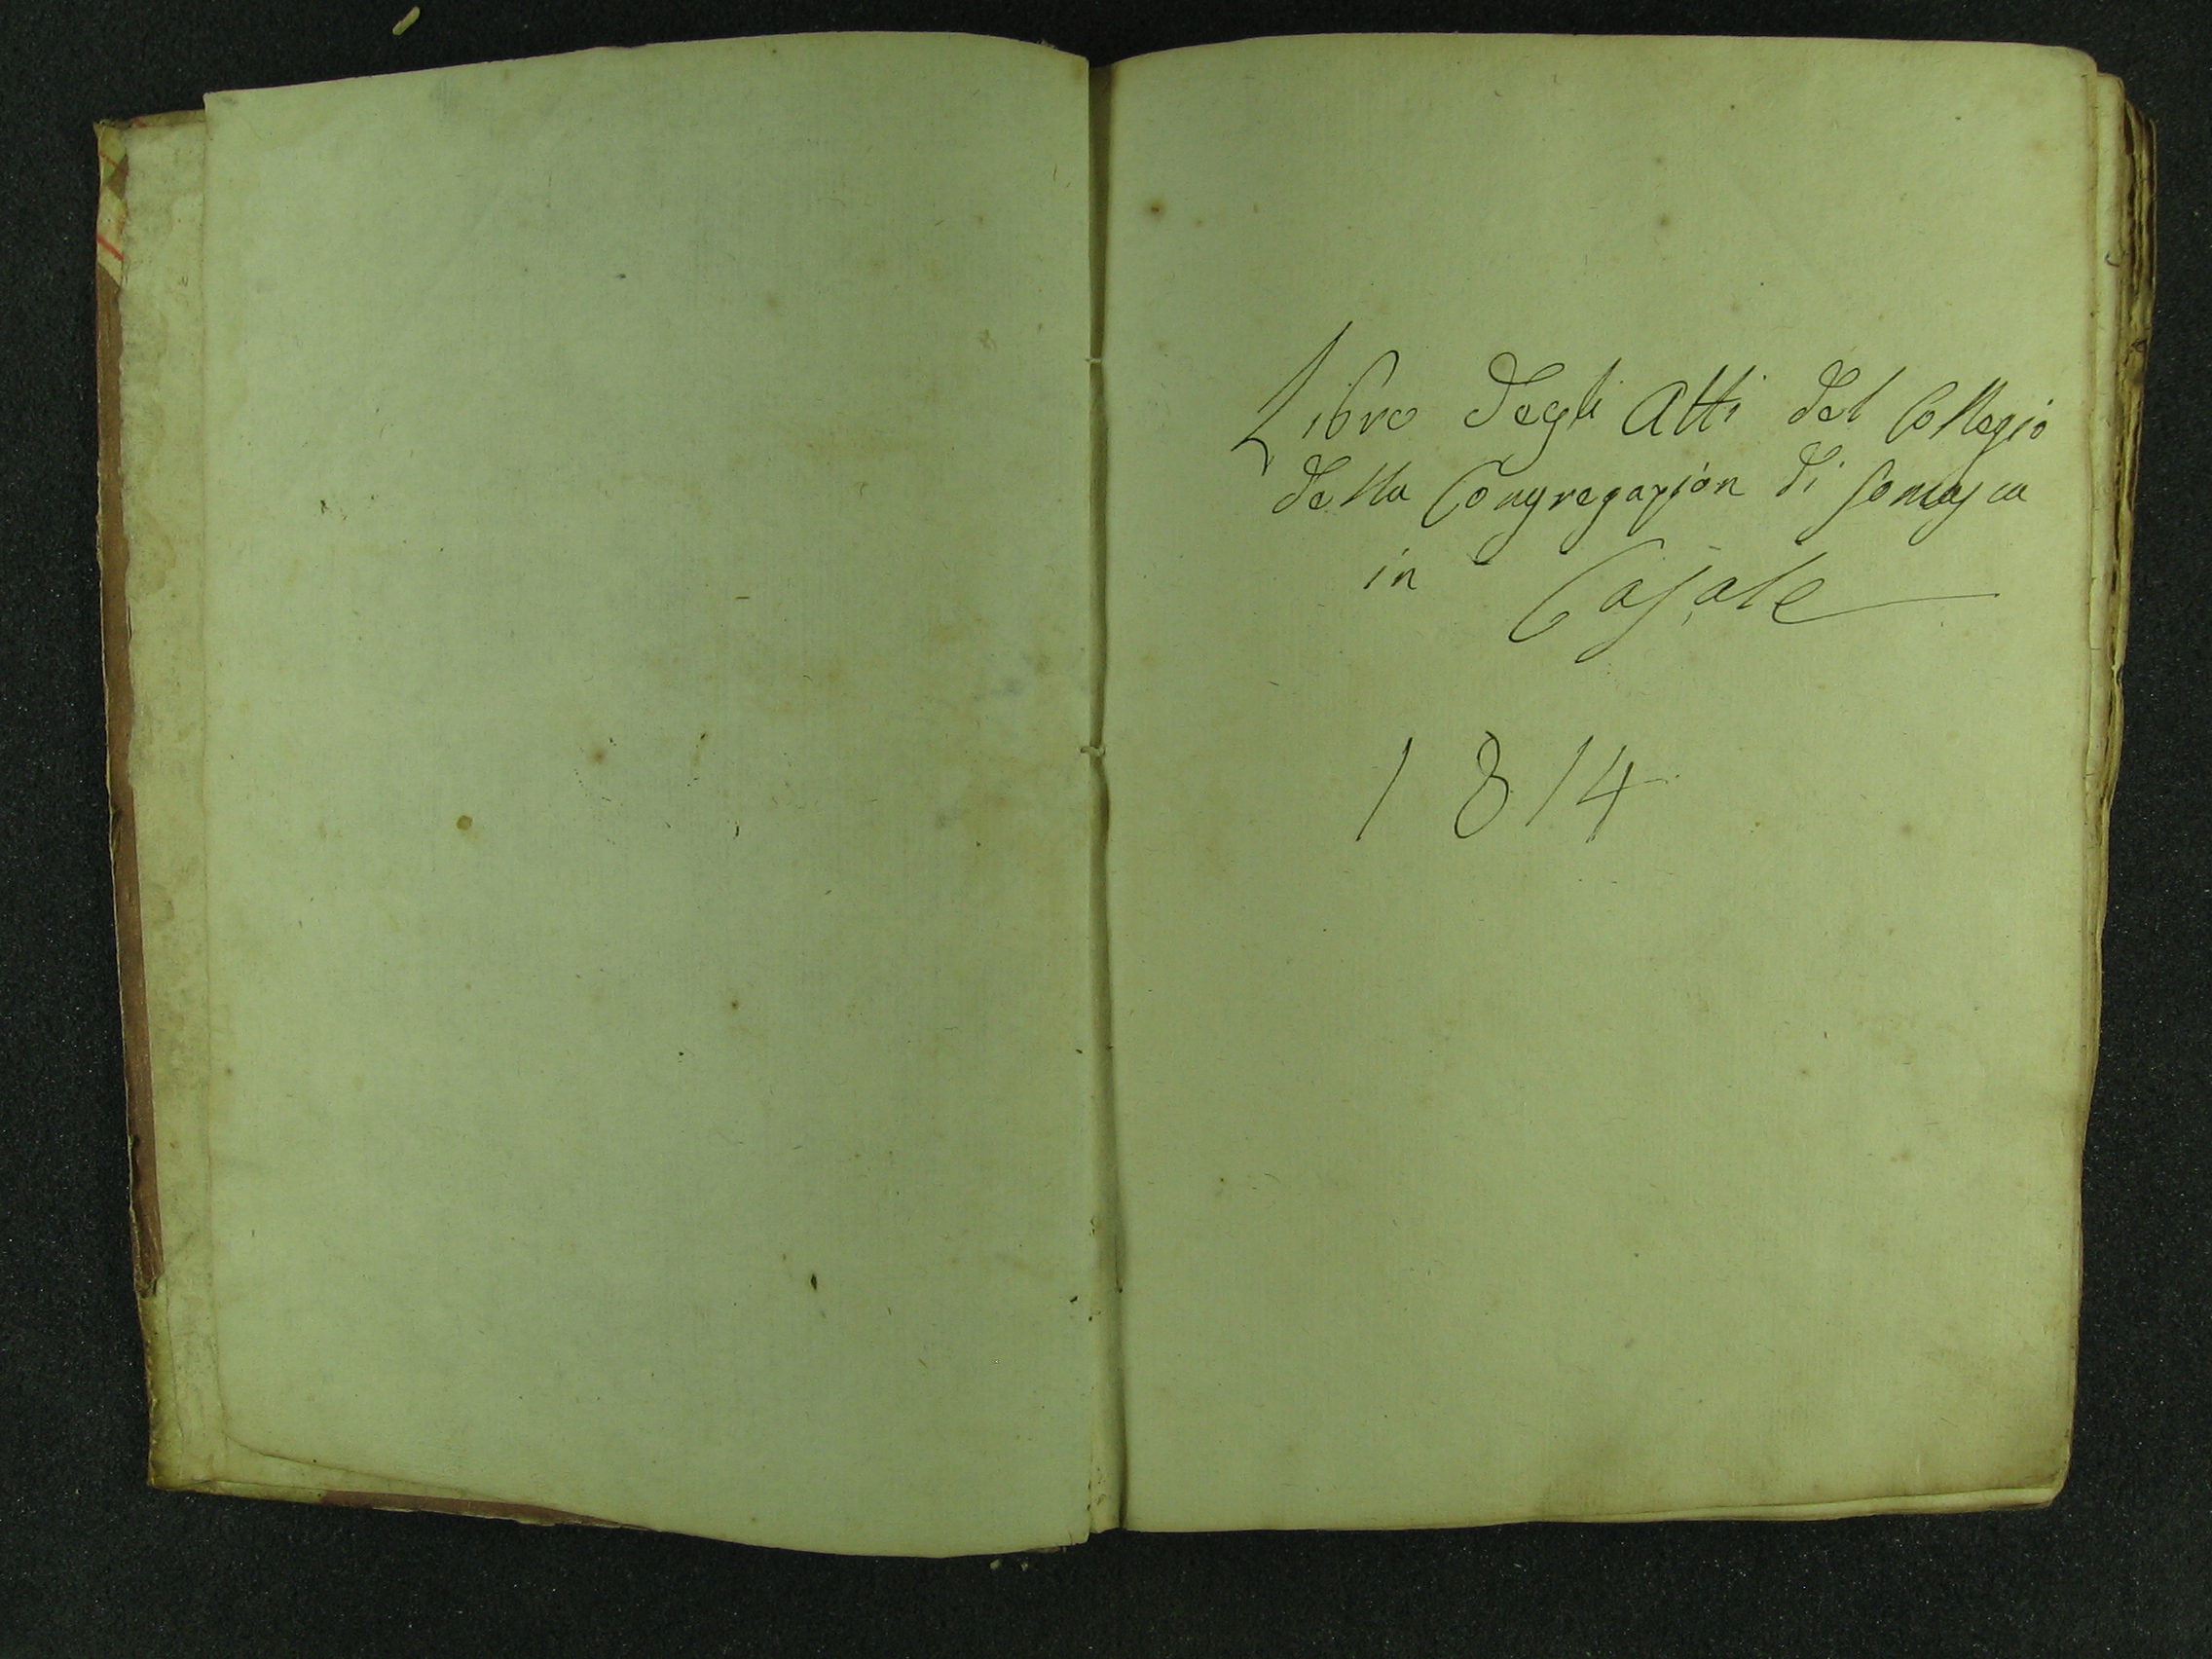 Libro degli Atti del Collegio
della Congregazion di Somasca
in Casale
1814